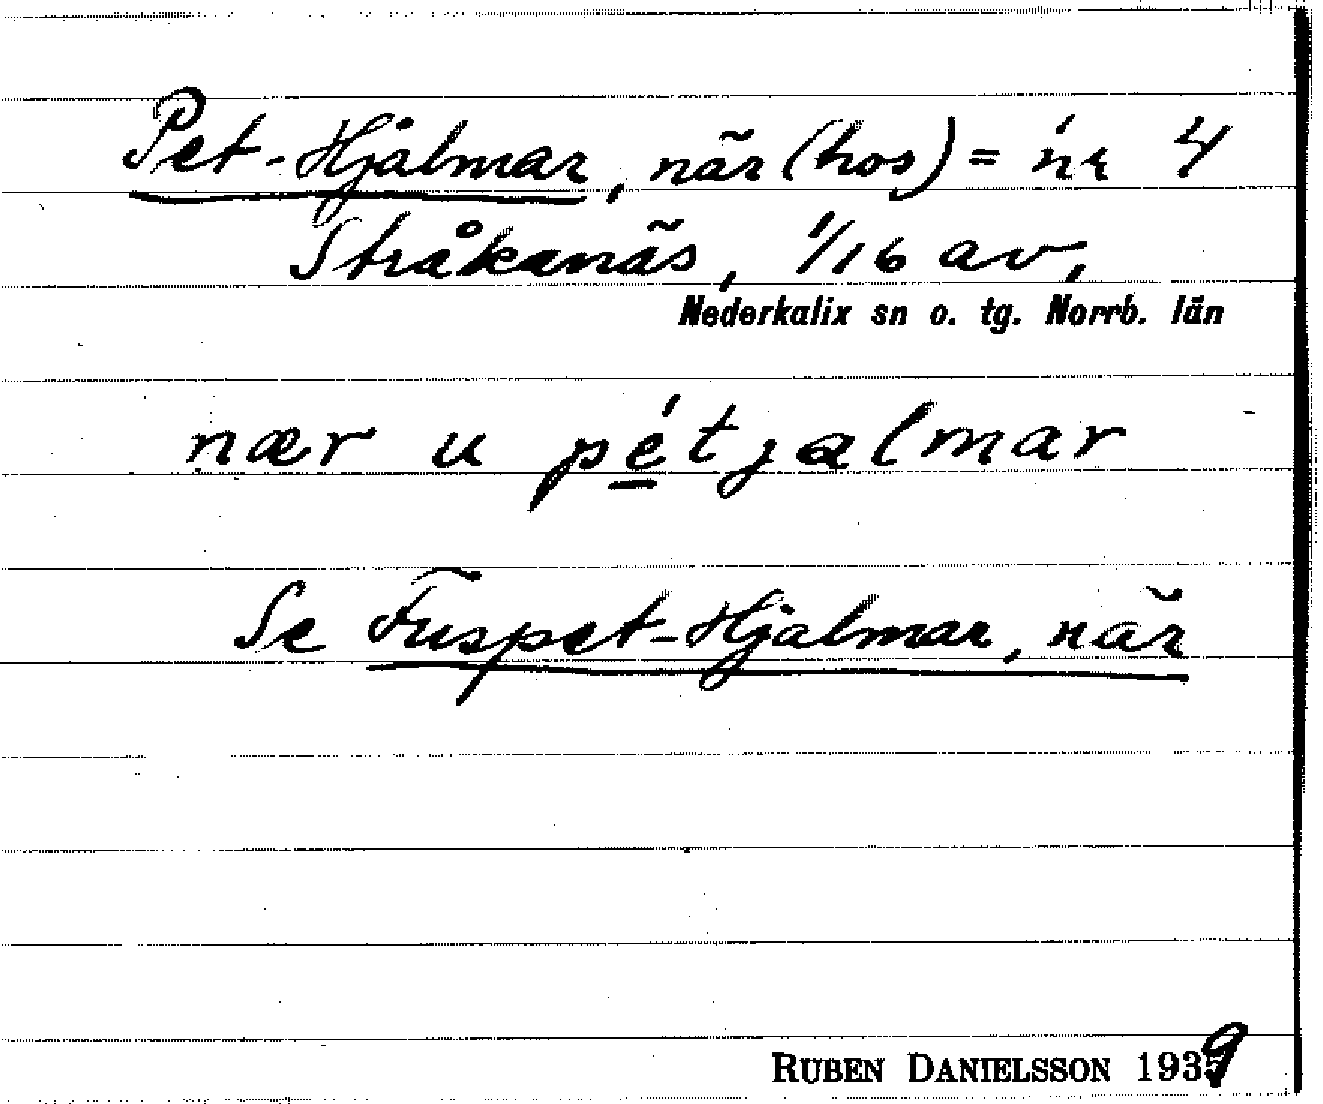 Pet-Hjalmar, när (hos) = nr 4
Stråkanäs, 1/16 av,
Nederkalix sn o. tg. Norrb. län
nær u pétjalmar
Se Fuspet-Hjalmar, när
RUBEN DANIELSSON 1939